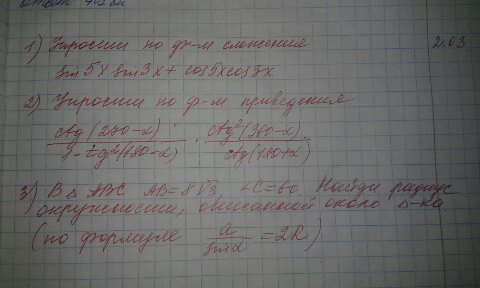 1) Упростит по ф-м сложения 2.03
sin 5x sin 3x + cos 5x cos 3x
2) Упростит по ф-м приведения
ctg (270-α) / 1-tg²(180-α) · ctg²(360-α) / ctg(180+α)
3) В △ ABC AB=8√3, ∠C=60. Найди радиус
окружности, описанной около △-ка.
(по формуле a / sin α = 2R)